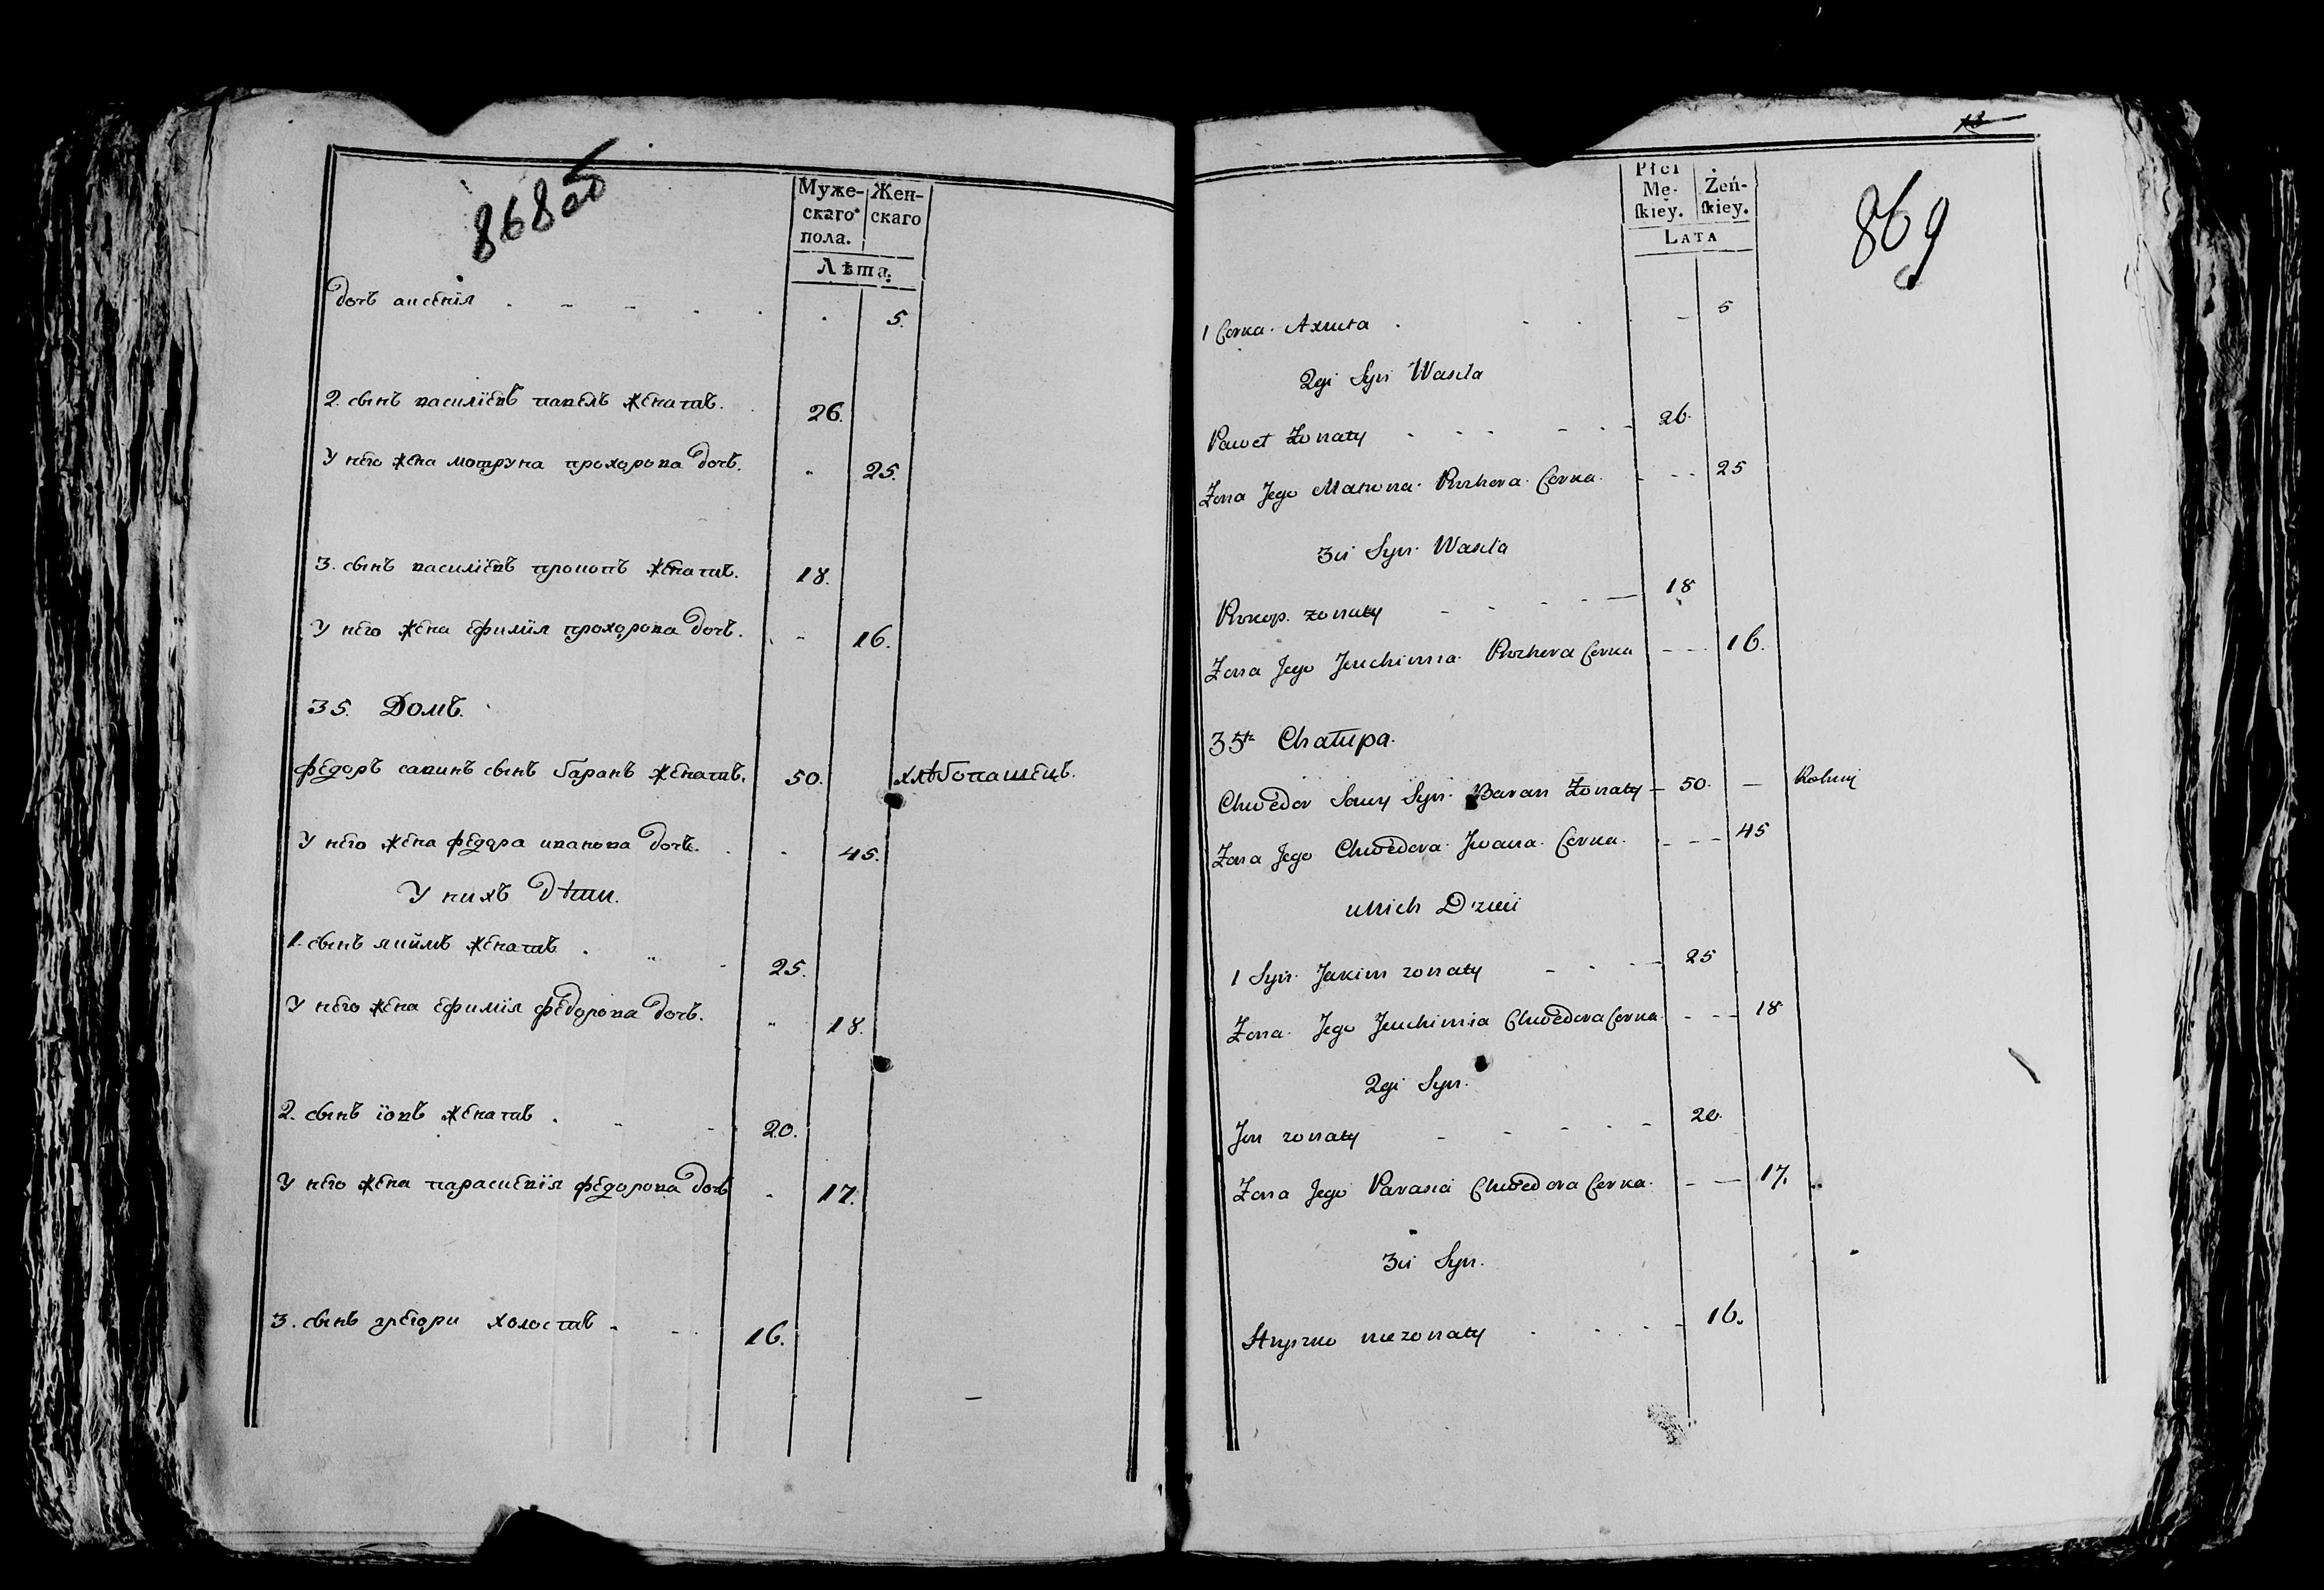 868 об
Муже-
скаго
пола.
Жен-
скаго
Лѣта.
дочь аксенія 5.
2. сынъ василіевъ павелъ женатъ. 26.
У него жена мотруна прохорова дочь. 25.
3. сынъ василіевъ прокопъ женатъ. 18.
У него жена ефимія прохорова дочь. 16.
35. Домъ.
федоръ савинъ сынъ баранъ женатъ. 50. хлѣбопашецъ.
У него жена федора иванова дочь. 45.
У нихъ дѣти.
1. сынъ якимъ женатъ 25.
У него жена ефимія федорова дочь. 18.
2. сынъ іовъ женатъ 20.
У него жена параскевія федорова дочь 17.
3. сынъ грегори холостъ 16.
869
Płci
Mę-
skiey.
Żeń-
skiey.
LATA
1 Corka Axiuta 5
2gi Syn Wasila
Paweł Żonaty 26.
Zona Jego Matrona Prochora Corka 25
3ci Syn Wasila
Prokop zonaty 18
Zona Jego Jeuchimia Prochora Corka 16.
35ta Chałupa.
Chwedor Sawy Syn Baran Żonaty 50. Rolniy
Zona Jego Chwedora Jwana Corka 45
u Nich Dzieci
1 Syn Jakim zonaty 25
Zona Jego Jeuchimia Chwedora Corka 18
2gi Syn.
Jow zonaty 20.
Zona Jego Parasia Chwedora Corka 17.
3ci Syn.
Hryszko niezonaty 16.